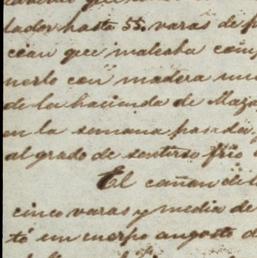 lador hasta 55. varas de p
cian que
nerlo con madera una
de la hacienda de Maza
en la semana pasada,
al grado de sentirse frio
El cañon de l
cinco varas y media de
tó un cuerpo angosto d